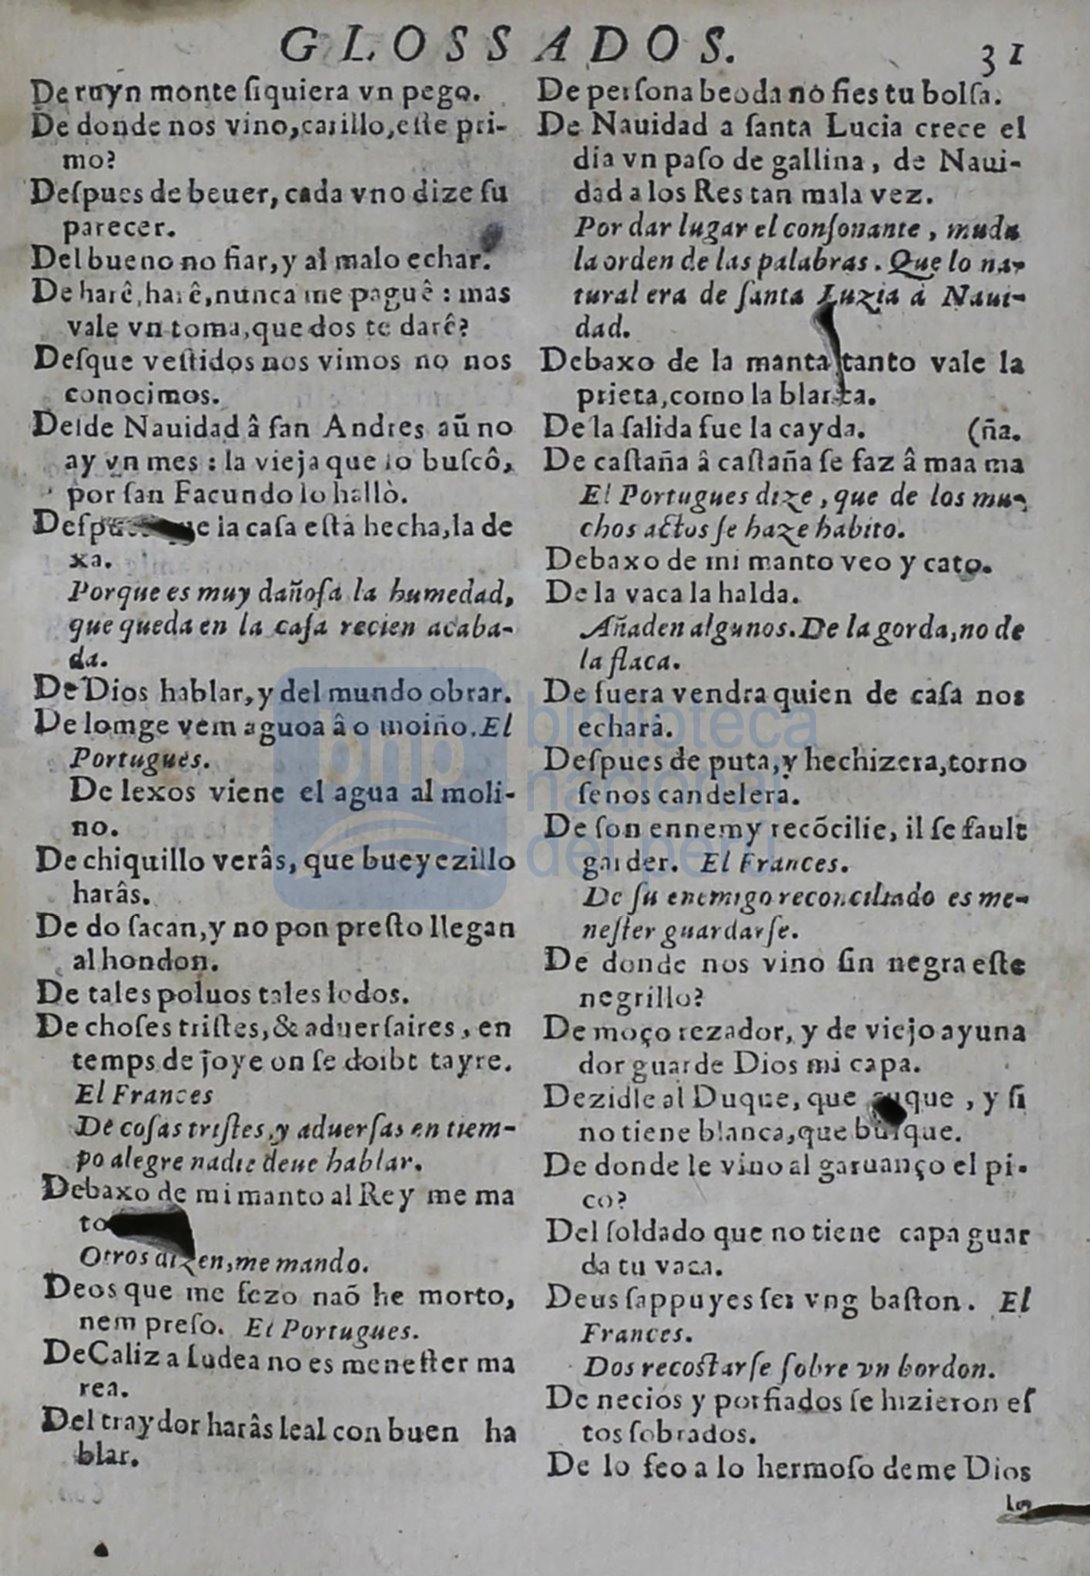 GLOSSADOS. 31
De ruyn monte siquiera vn pego.
De donde nos vino,carillo,este pri-
mo?
Despues de beuer, cada vno dize su
parecer.
Del bueno no fiar,y al malo echar.
De harê,harê,nunca me paguê : mas
vale vn toma,que dos te darê?
Desque vestidos nos vimos no nos
conocimos.
Desde Nauidad â san Andres aũ no
ay vn mes : la vieja que lo buscô,
por san Facundo lo hallò.
la casa está hecha,la de
xa.
Porque es muy dañosa la humedad,
que queda en la casa recien acaba-
da.
De Dios hablar,y del mundo obrar.
De lomge vem aguoa â o moiño.El
Portugues.
De lexos viene el agua al moli-
no.
De chiquillo verâs, que bueyezillo
harâs.
De do sacan,y no pon presto llegan
al hondon.
De tales poluos tales lodos.
De choses tristes,& aduersaires , en
temps de joye on se doibt tayre.
El Frances
De cosas tristes,y aduersas en tiem-
po alegre nadie deue hablar.
Debaxo de mi manto al Rey me ma
to
Otros dizen,me mando.
Deos que me fezo naõ he morto,
nem preso. El Portugues.
De Caliz a Iudea no es menester ma
rea.
Del traydor harâs leal con buen ha
blar.
De persona beoda no fies tu bolsa.
De Nauidad a santa Lucia crece el
dia vn paso de gallina , de Naui-
dad a los Res tan mala vez.
Por dar lugar el consonante , muda
la orden de las palabras . Que lo na-
tural era de santa Luzia à Naui-
dad.
Debaxo de la manta tanto vale la
prieta,como la blanca.
De la salida fue la cayda. (ña.
De castaña â castaña se faz â maa ma
El Portugues dize , que de los mu-
chos actos se haze habito.
Debaxo de mi manto veo y cato.
De la vaca la halda.
Añaden algunos.De la gorda,no de
la flaca.
De fuera vendra quien de casa nos
echará.
Despues de puta,y hechizera,torno
senos candelera.
De son ennemy recõcilie, il se fault
garder. El Frances.
De su enemigo reconciliado es me-
nester guardarse.
De donde nos vino sin negra este
negrillo?
De moço rezador, y de viejo ayuna
dor guarde Dios mi capa.
Dezidle al Duque, que , y si
no tiene blanca,que busque.
De donde le vino al garuanço el pi-
co?
Del soldado que no tiene capa guar
da tu vaca.
Deus sappuyes ser vng baston. El
Frances.
Dos recostarse sobre vn bordon.
De necios y porfiados se hizieron es
tos sobrados.
De lo feo a lo hermoso deme Dios
bnp biblioteca
nacional
del perú